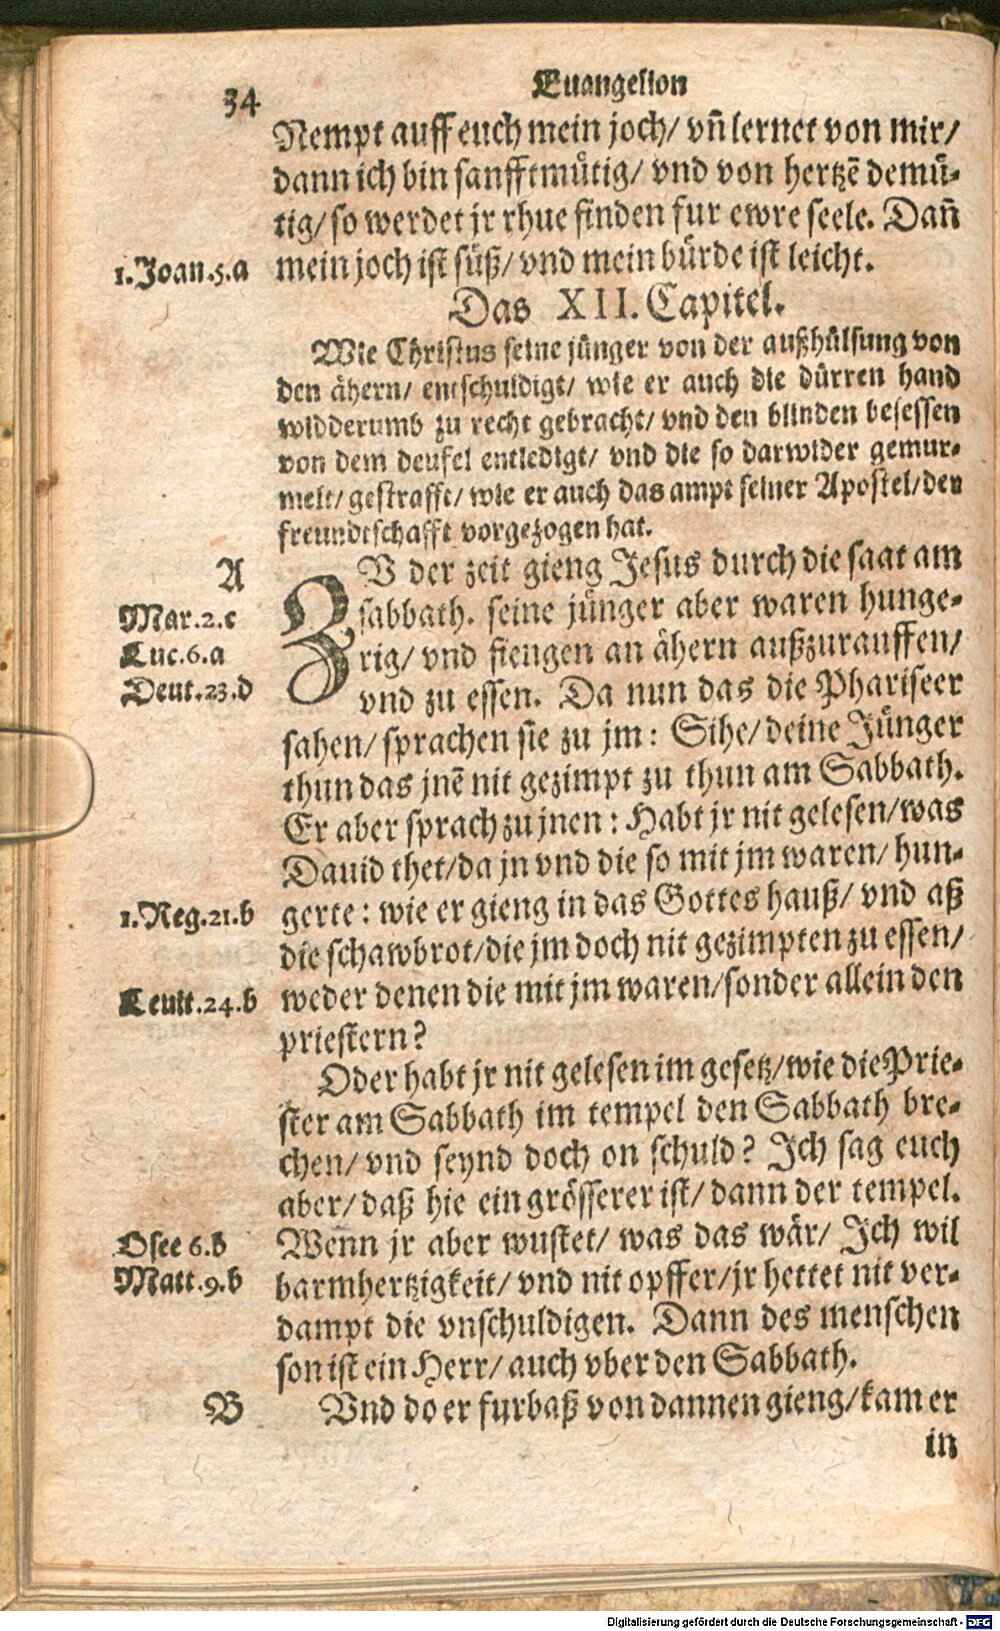 34
Euangelion
Nempt auff euch mein joch/ vñ lernet von mir/
dann ich bin sanfftmütig/ vnd von hertzē demü-
tig/ so werdet jr rhue finden fur ewre seele. Dañ
1.Joan.5.a mein joch ist süß/ vnd mein bürde ist leicht.
Das XII. Capitel.
Wie Christus seine jünger von der außhülsung von
den ähern/ entschuldigt/ wie er auch die dürren hand
widderumb zu recht gebracht/ vnd den blinden besessen
von dem deufel entledigt/ vnd die so darwider gemur-
melt/ gestrafft/ wie er auch das ampt seiner Apostel/ der
freundtschafft vorgezogen hat.
A ZV der zeit gieng Jesus durch die saat am
Mar.2.c sabbath. seine jünger aber waren hunge-
Luc.6.a rig/ vnd fiengen an ähern außzurauffen/
Deut.23.d vnd zu essen. Da nun das die Phariseer
sahen/ sprachen sie zu jm: Sihe/ deine Jünger
thun das jnē nit gezimpt zu thun am Sabbath.
Er aber sprach zu jnen: Habt jr nit gelesen/ was
Dauid thet/ da jn vnd die so mit jm waren/ hun-
1.Reg.21.b gerte: wie er gieng in das Gottes hauß/ vnd aß
die schawbrot/ die jm doch nit gezimpten zu essen/
Leuit.24.b weder denen die mit jm waren/ sonder allein den
priestern?
Oder habt jr nit gelesen im gesetz/ wie die Prie-
ster am Sabbath im tempel den Sabbath bre-
chen/ vnd seynd doch on schuld? Ich sag euch
aber/ daß hie ein grösserer ist/ dann der tempel.
Osee 6.b Wenn jr aber wustet/ was das wär/ Ich wil
Matt.9.b barmhertzigkeit/ vnd nit opffer/ jr hettet nit ver-
dampt die vnschuldigen. Dann des menschen
son ist ein Herr/ auch vber den Sabbath.
B Vnd do er furbaß von dannen gieng/ kam er
in
Digitalisierung gefördert durch die Deutsche Forschungsgemeinschaft - DFG